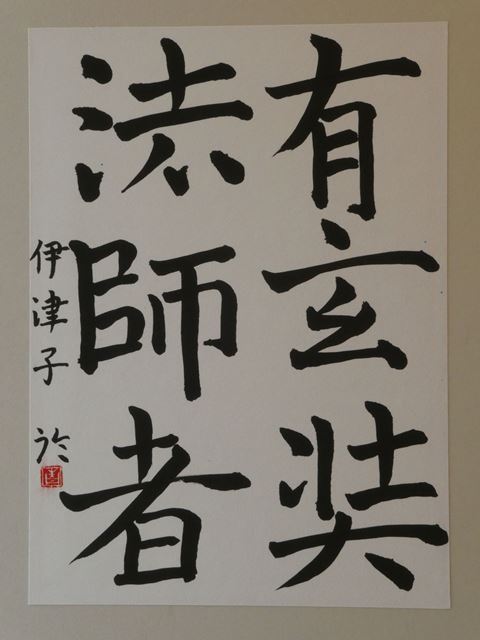 有玄奘
法師者
伊津子